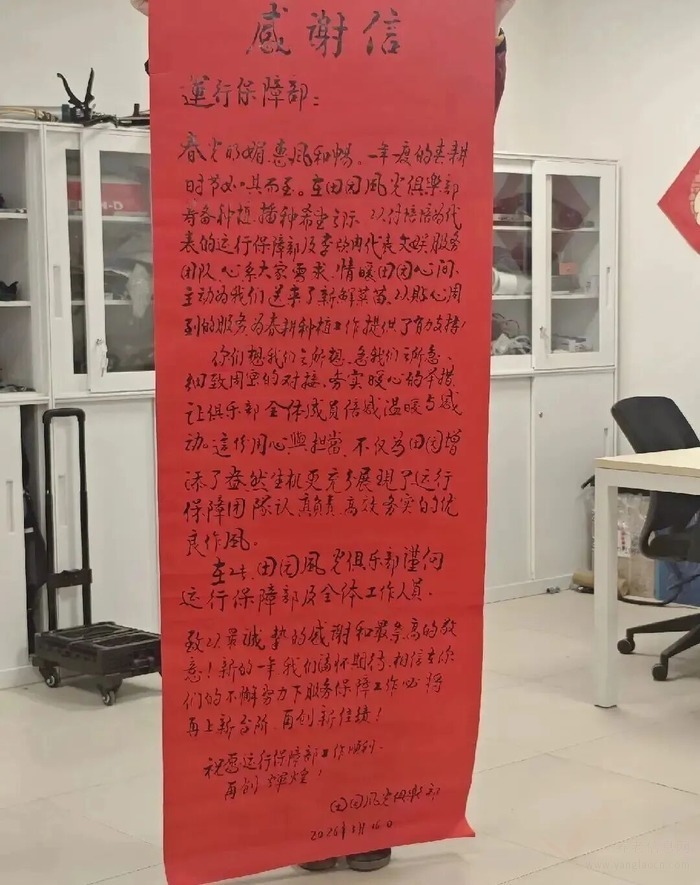 感谢信
運行保障部：
春光明媚,惠风和畅。一年一度的春耕
时节如期而至。在田园风光俱樂部
筹备种植,播种希望之际,以付培培为代
表的运行保障部及李
团队,心系大家需求,情暖田园心间,
主动为我们送来了新鲜菜苗,以贴心周
到的服务,为春耕种植工作提供了有力支持!
你们想我们之所想、急我们之所急、
细致周密的对接,务实暖心的举措,
让俱乐部全体成员倍感温暖与感
动。這份用心與担當,不仅为田园增
添了盎然生机更充分展現了运行
保障团隊认真負責、高效务实的优
良作风。
在此,田园风光俱乐部谨向
运行保障部及全体工作人員,
致以最诚挚的感谢和最崇高的敬
意!新的一年我们满怀期待,相信在你
们的不懈努力下服务保障工作必将
再上新台阶,再创新佳绩!
祝愿运行保障部工作顺利,
再创辉煌!
田园风光俱樂部
2026年3月16日